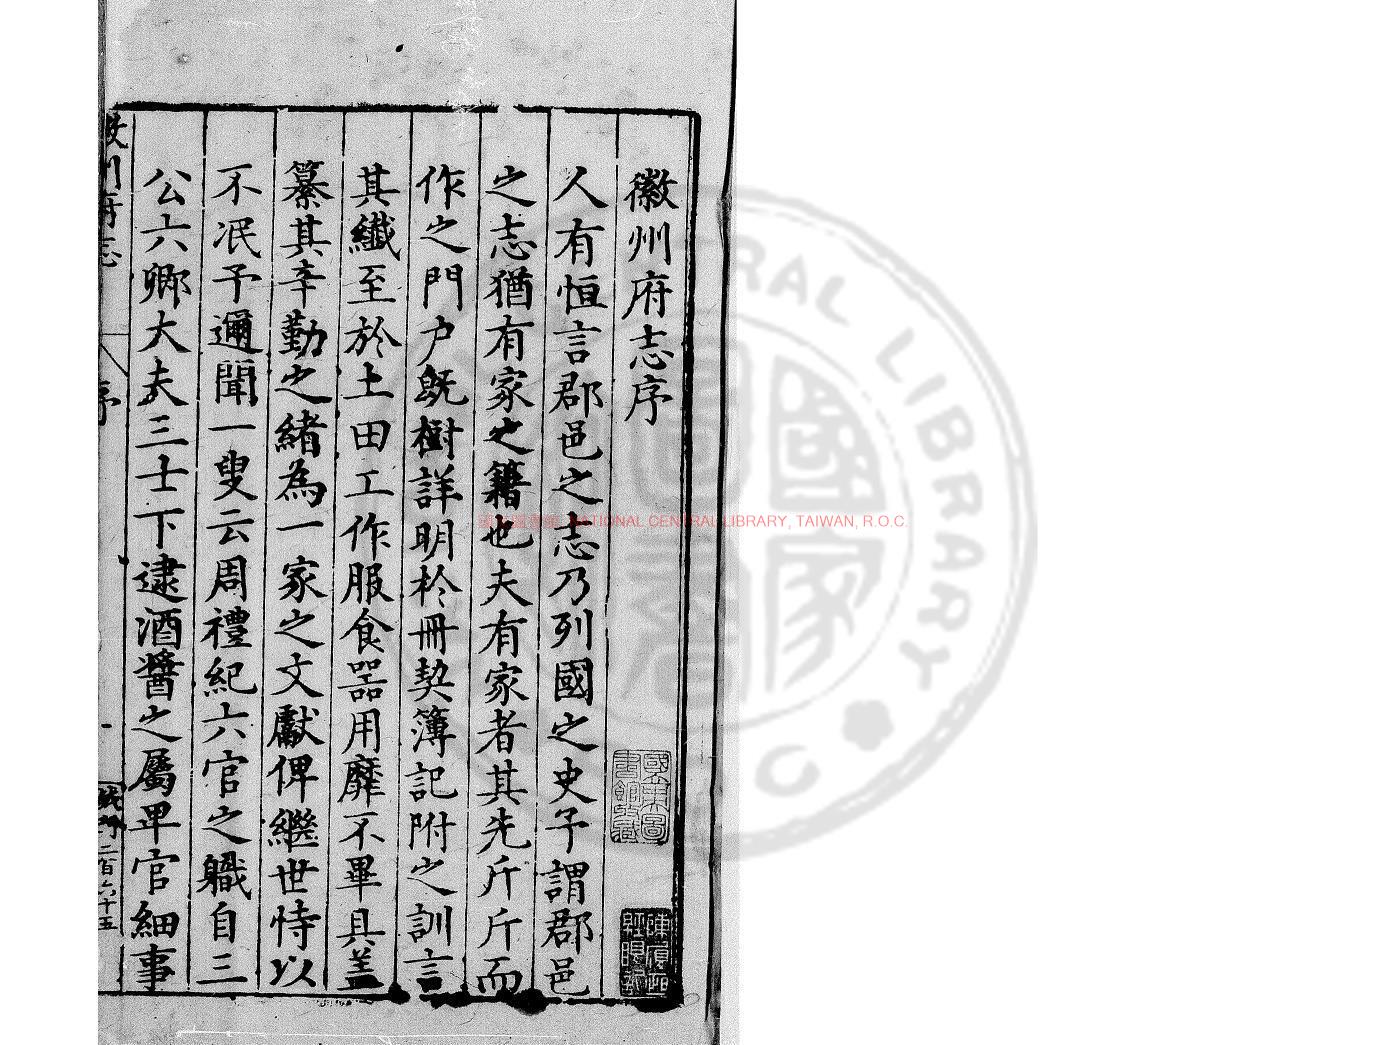 徽州府志序
人有恒言郡邑之志乃列國之史予謂郡邑
之志猶有家之籍也夫有家者其先斤斤而
作之門户既樹詳明扵冊契簿記附之訓言
其纖至於土田工作服食器用靡不畢具盖
纂其辛勤之緒為一家之文獻俾繼世恃以
不泯予邇聞一叟云周禮紀六官之職自三
公六卿大夫三士下逮酒醬之屬卑官細事
志
序
二百六十五
國家圖書館 NATIONAL CENTRAL LIBRARY, TAIWAN, R.O.C.
國家圖書
CENTRAL LIBRARY